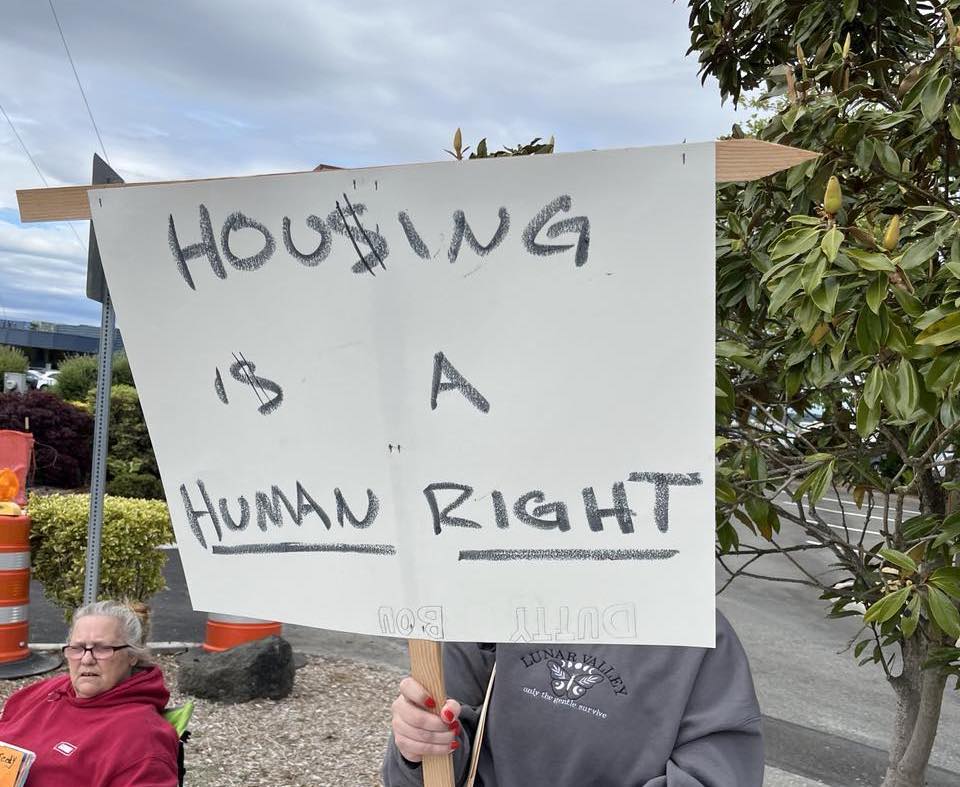 HOU$ING
I$ A
HUMAN RIGHT
LUNAR VALLEY
only the gentle survive